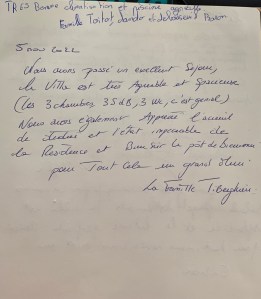 TRES Bonne climatisation et piscine appréciée
Famille Toitot, Sandor et
5 mai 2022
Nous avons passé un excellent Séjour,
la Villa est très Agréable et Spacieuse
(les 3 chambres, 3 SdB, 3 WC, c'est génial)
Nous avons également Apprécié l'accueil
de et l'état impeccable de
la Résidence et Bien sûr le pot de Bienvenue
pour Tout Cela un grand Merci.
La Famille Tiberghien